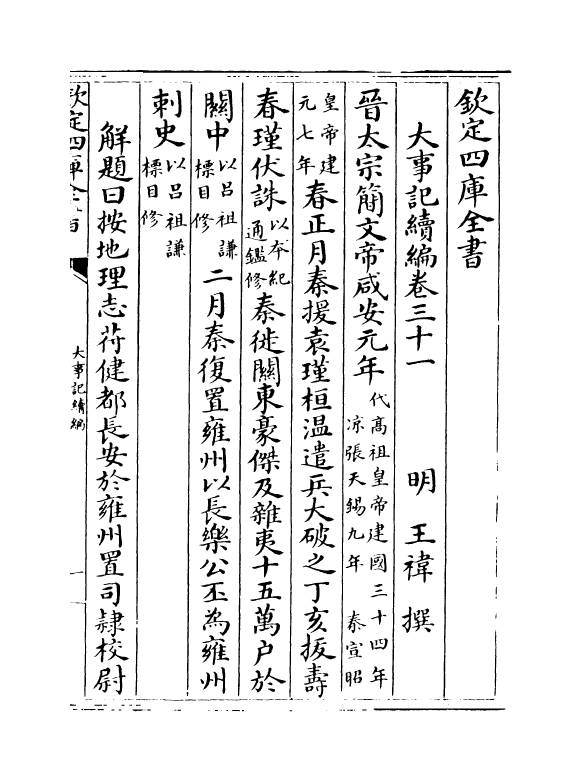 欽定四庫全書
大事記續編卷三十一　明　王禕　撰
晉太宗簡文帝咸安元年代高祖皇帝建國三十四年涼張天錫九年　秦宣昭
皇帝建元七年春正月秦援袁瑾桓温遣兵大破之丁亥拔壽
春瑾伏誅以本紀通鑑修秦徙關東豪傑及雜夷十五萬户於
關中以吕祖謙標目修二月秦復置雍州以長樂公丕為雍州
刺史以吕祖謙標目修
解題曰按地理志苻健都長安於雍州置司隸校尉
欽定四庫全書
大事記續編
一